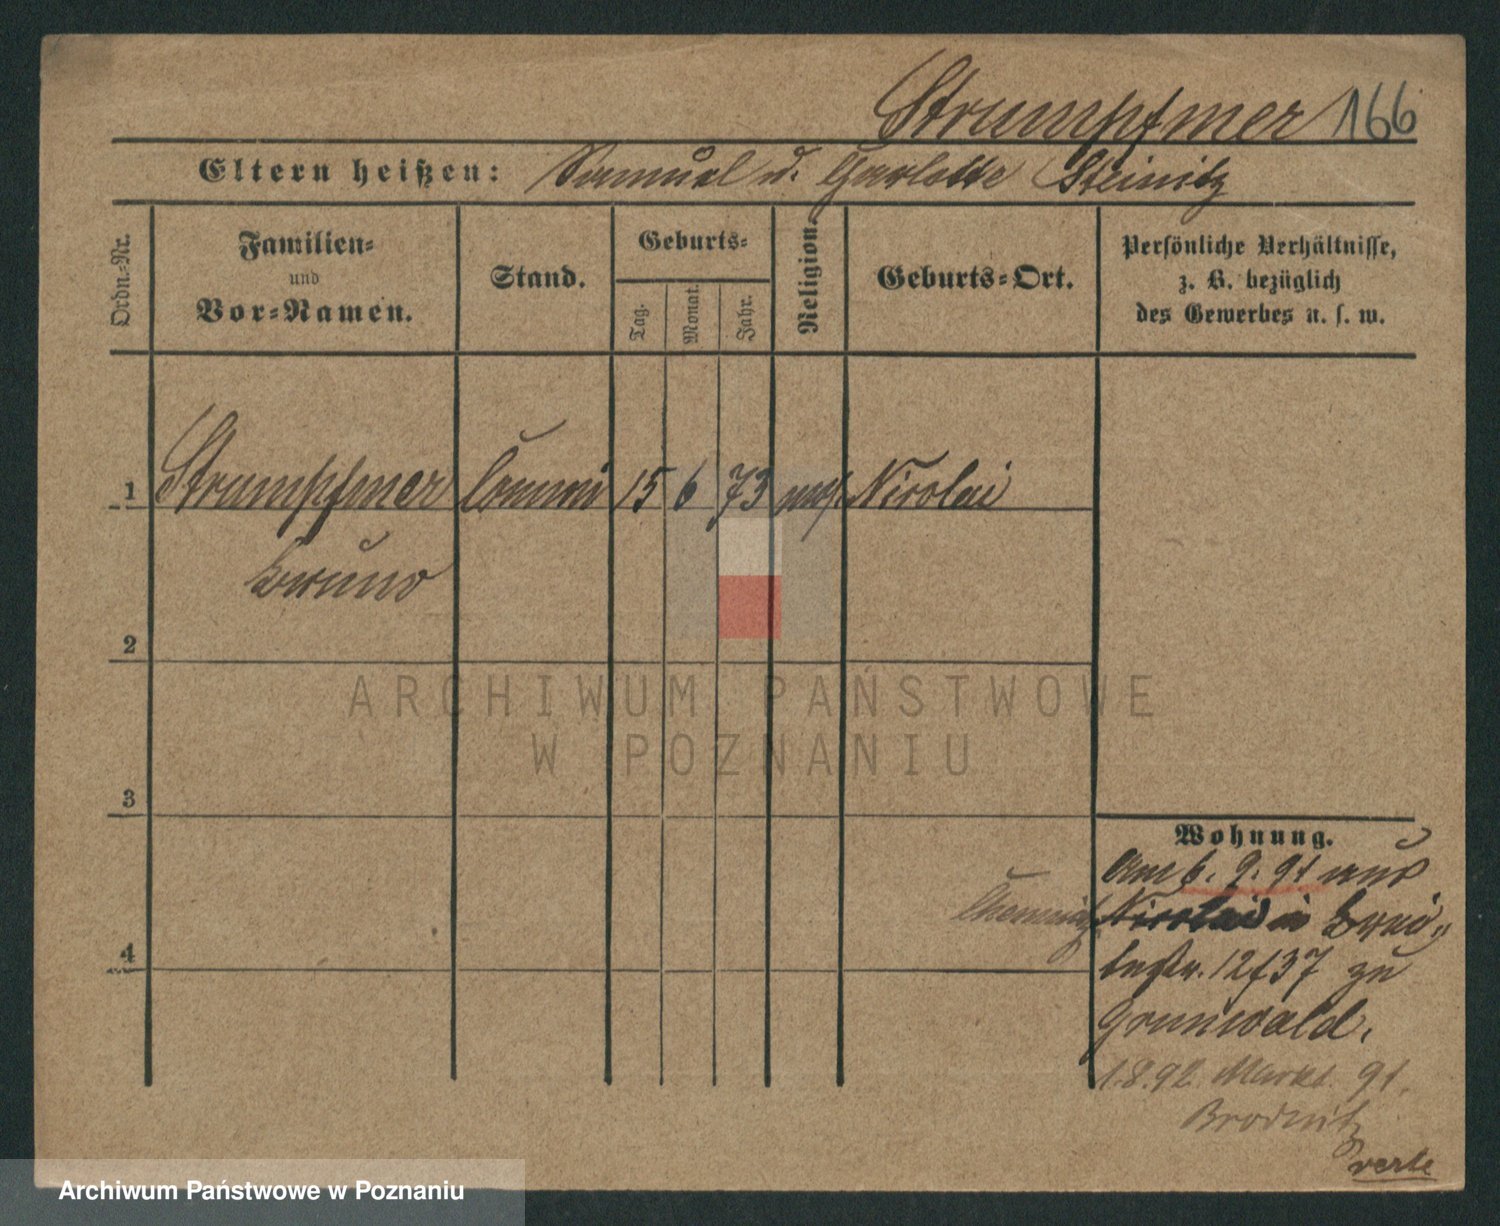 Strumpfmer 166
Eltern heißen: Samuel u. Charlotte Steinitz
Ordn.=Nr.
Familien=
und
Vor=Namen.
Stand.
Geburts=
Tag.
Monat.
Jahr.
Religion.
Geburts=Ort.
Persönliche Verhältnisse,
z. B. bezüglich
des Gewerbes u. s. w.
1 Strumpfmer Commi 15 6 73 mos. Nicolai
Bruno
2
3
4
ARCHIWUM PAŃSTWOWE
W POZNANIU
Wohnung.
Am 6. 9. 91 aus
Chemnitz Nicolai in Brei
testr. 12/37 zu
Grunwald.
1.8.92 Markt 91.
Brodnitz
verte
Archiwum Państwowe w Poznaniu